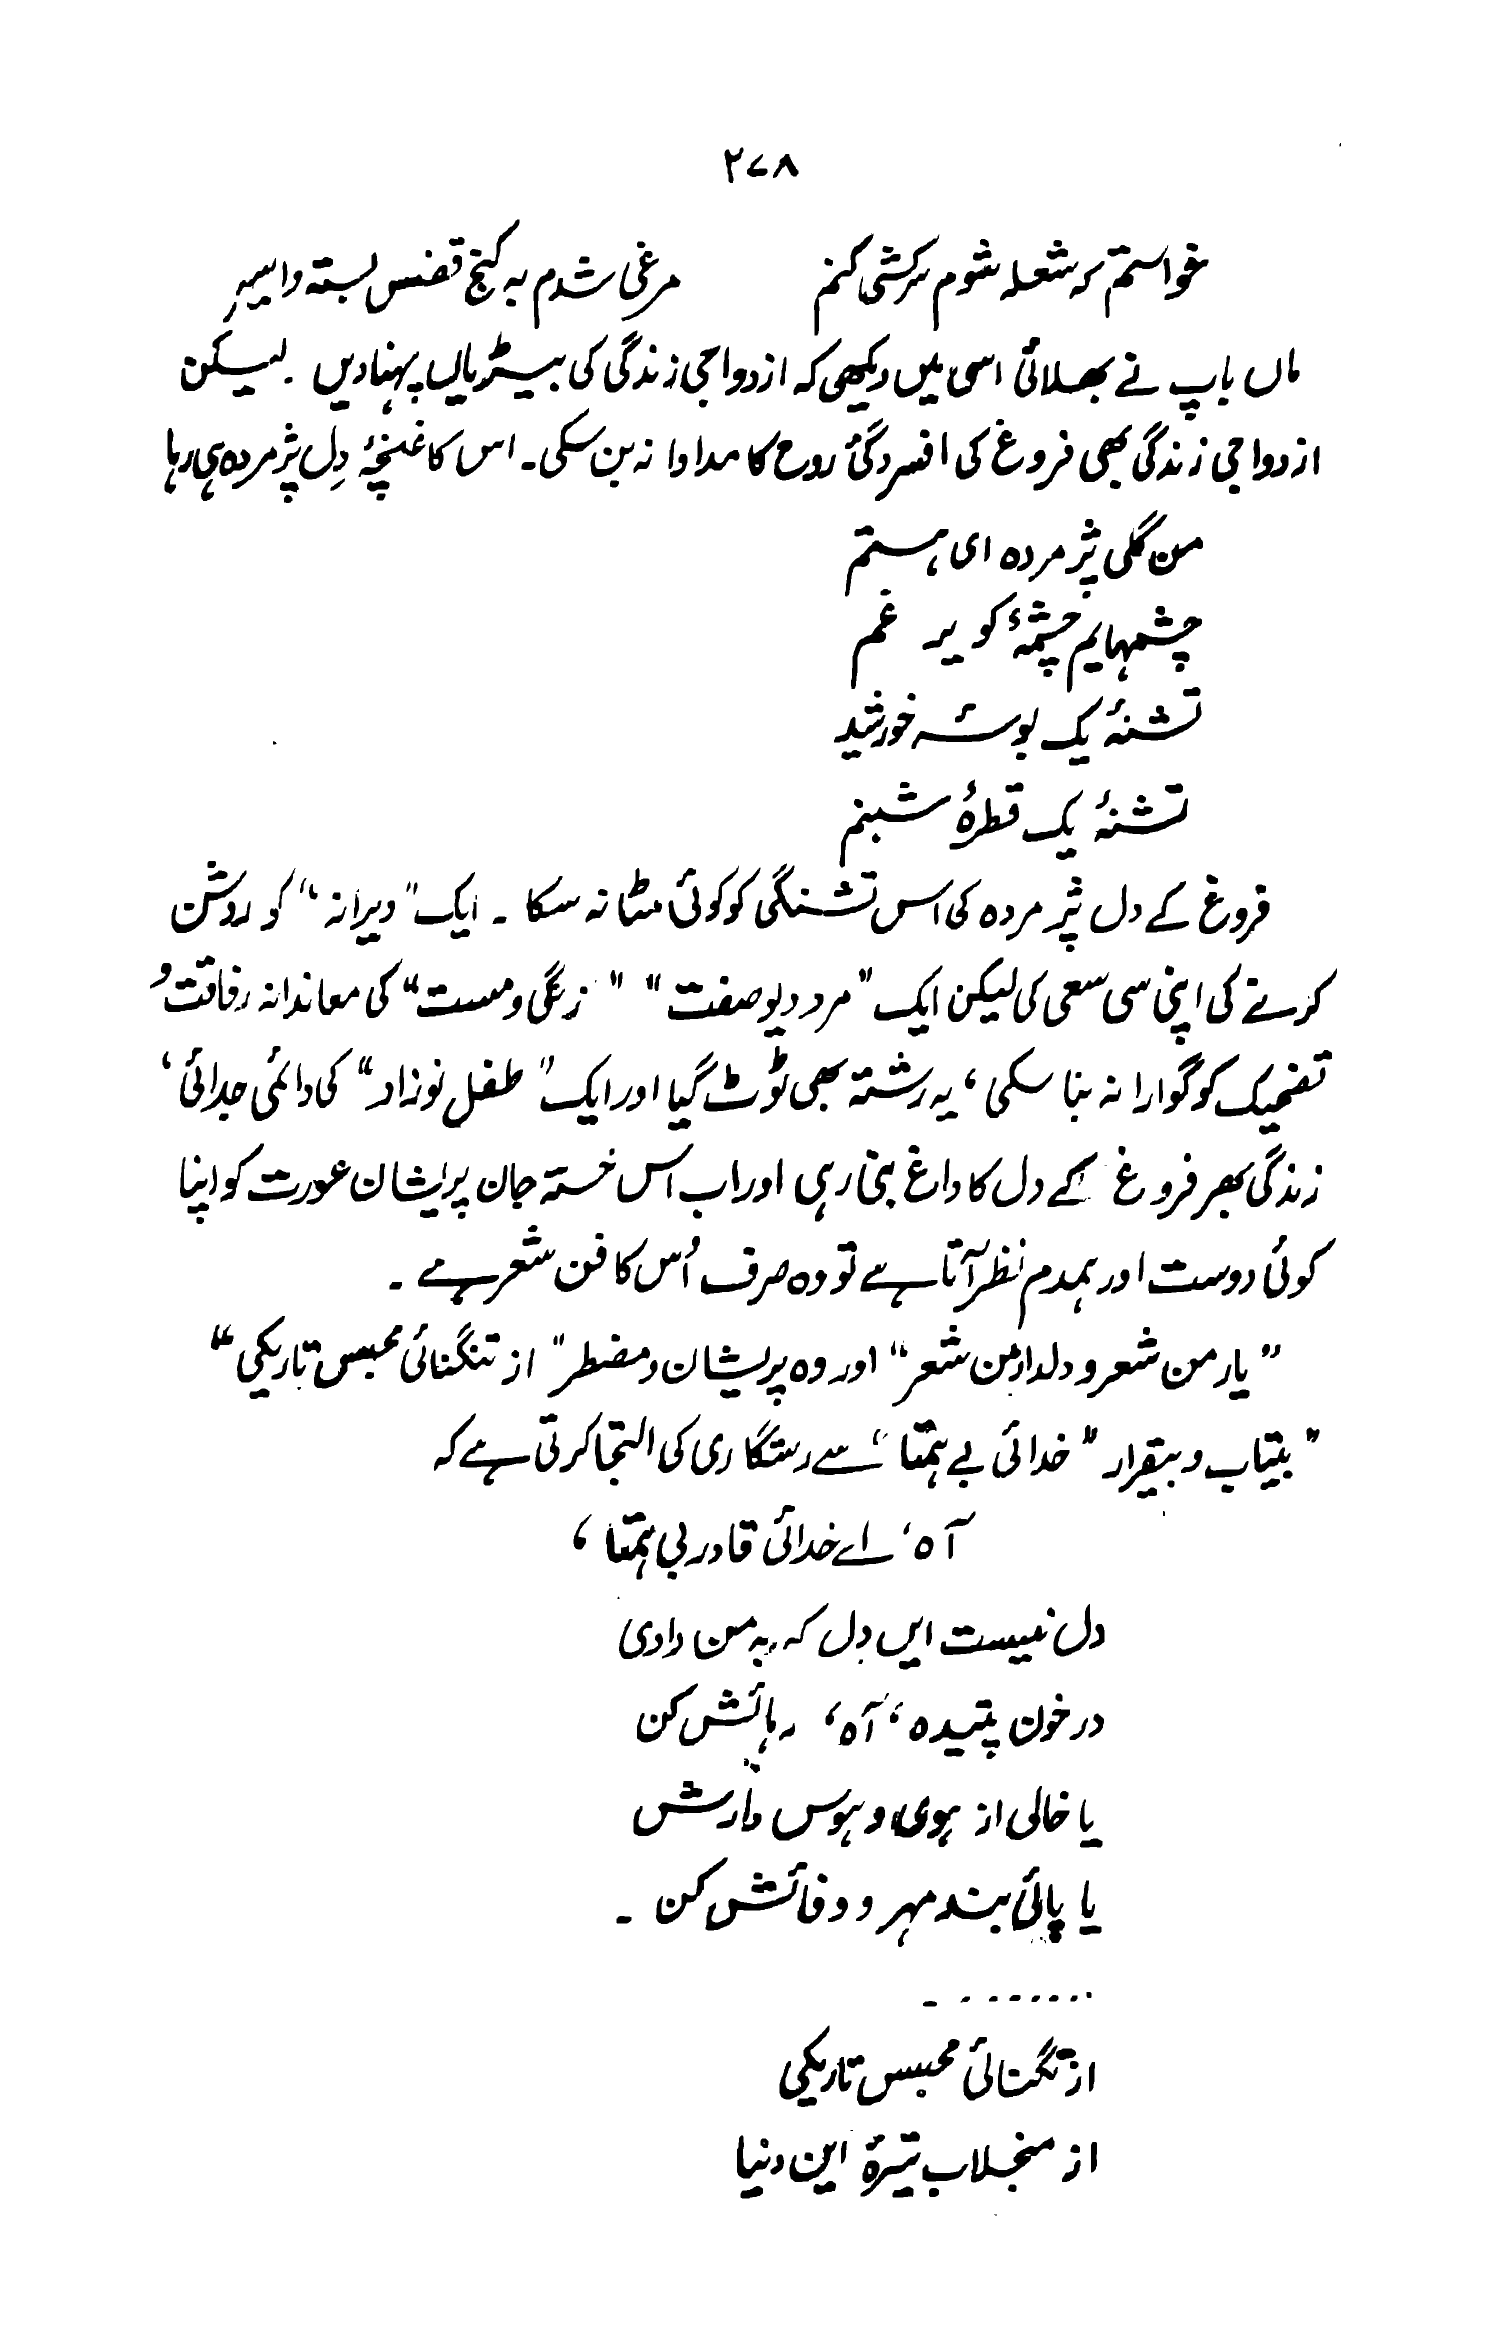 ۲۷۸
خواستم که شعله شوم سرکشی کنم مرغی شدم به کنج قفس بسته و اسیر
ماں باپ نے بھلائی اسی میں دیکھی کہ ازدواجی زندگی کی بیڑیاں پہنا دیں ۔ لیکن
ازدواجی زندگی بھی فروغ کی افسردگیٔ روح کا مداوا نہ بن سکی۔ اس کا غنچۂ دِل پژمردہ ہی رہا
من گلی پژمرده ای هستم
چشمهایم چشمۂ کویر غم
تشنۂ یک بوسۂ خورشید
تشنۂ یک قطرۂ شبنم
فروغ کے دل پژمردہ کی اس تشنگی کو کوئی مٹا نہ سکا ۔ ایک "ویرانہ" کو روشن
کرنے کی اپنی سی سعی کی لیکن ایک "مرد دیو صفت" "زنگی و مست" کی معاندانہ رفاقت و
تضحیک کو گوارا نہ بنا سکی، یہ رشتہ بھی ٹوٹ گیا اور ایک "طفل نوزاد" کی دائمی جدائی،
زندگی بھر فروغ کے دل کا داغ بنی رہی اور اب اس خستہ جان پریشان عورت کو اپنا
کوئی دوست اور ہمدم نظر آتا ہے تو وہ صرف اُس کا فن شعر ہے ۔
"یار من شعر و دلدار من شعر" اور وہ پریشان و مضطر "از تنگنائی محبس تاریکی"
"بیتاب و بیقرار" خدائی بے ہمتا، سے رستگاری کی التجا کرتی ہے کہ
آہ، اے خدائی قادر بی ہمتا،
دل نیست ایں دل کہ بہ من دادی
در خون تپیدہ، آہ، رہائش کن
یا خالی از ہوی و ہوس دارش
یا پائی بند مہر و وفائش کن ۔
........ ۔
از تنگنائی محبس تاریکی
از منجلاب تیرۂ این دنیا